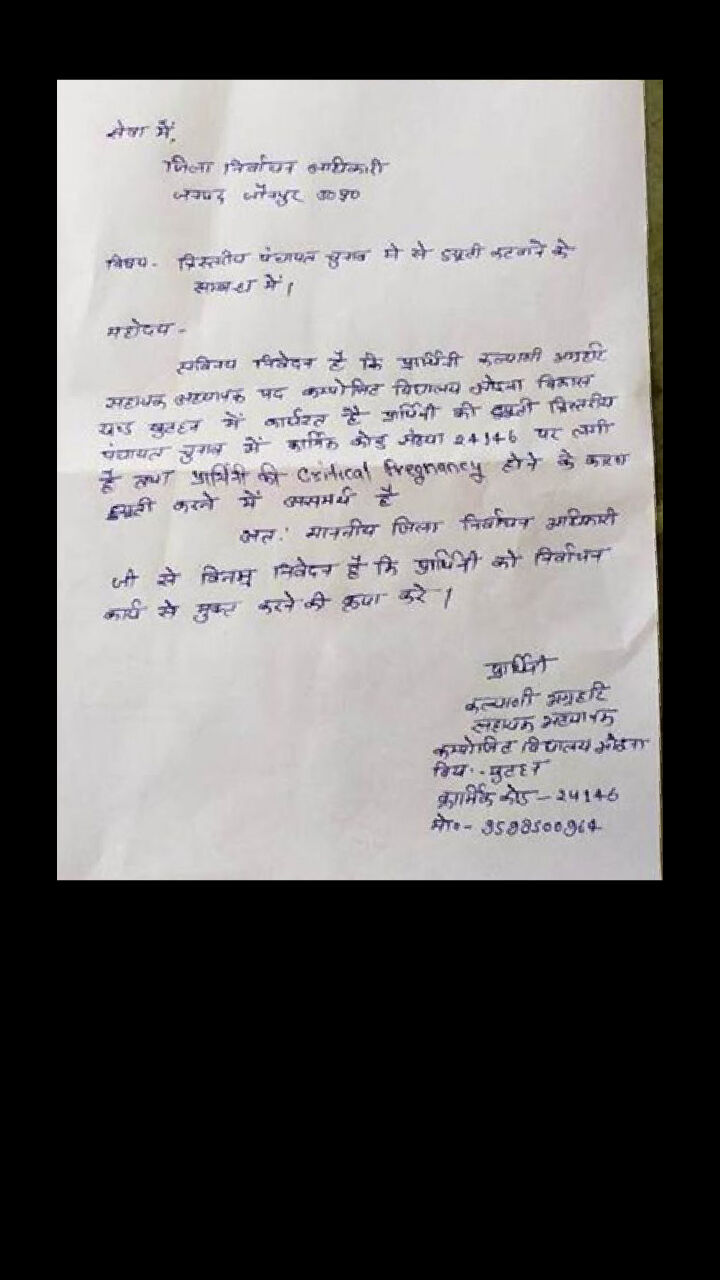 सेवा में,
जिला निर्वाचन अधिकारी
जनपद जौनपुर उ०प्र०
विषय - त्रिस्तरीय पंचायत चुनाव में से ड्यूटी कटवाने के
सम्बन्ध में।
महोदय -
सविनय निवेदन है कि प्रार्थिनी कल्याणी अग्रहरि
सहायक अध्यापक पद कम्पोजिट विद्यालय विकास
खण्ड खुटहन में कार्यरत है प्रार्थिनी की ड्यूटी त्रिस्तरीय
पंचायत चुनाव में कार्मिक कोड संख्या 24146 पर लगी
है तथा प्रार्थिनी की Critical Pregnancy होने के कारण
ड्यूटी करने में असमर्थ है
अत: माननीय जिला निर्वाचन अधिकारी
जी से विनम्र निवेदन है कि प्रार्थिनी को निर्वाचन
कार्य से मुक्त करने की कृपा करे।
प्रार्थिनी
कल्याणी अग्रहरि
सहायक अध्यापक
कम्पोजिट विद्यालय
खुटहन
कार्मिक कोड - 24146
मो०- 9598500964